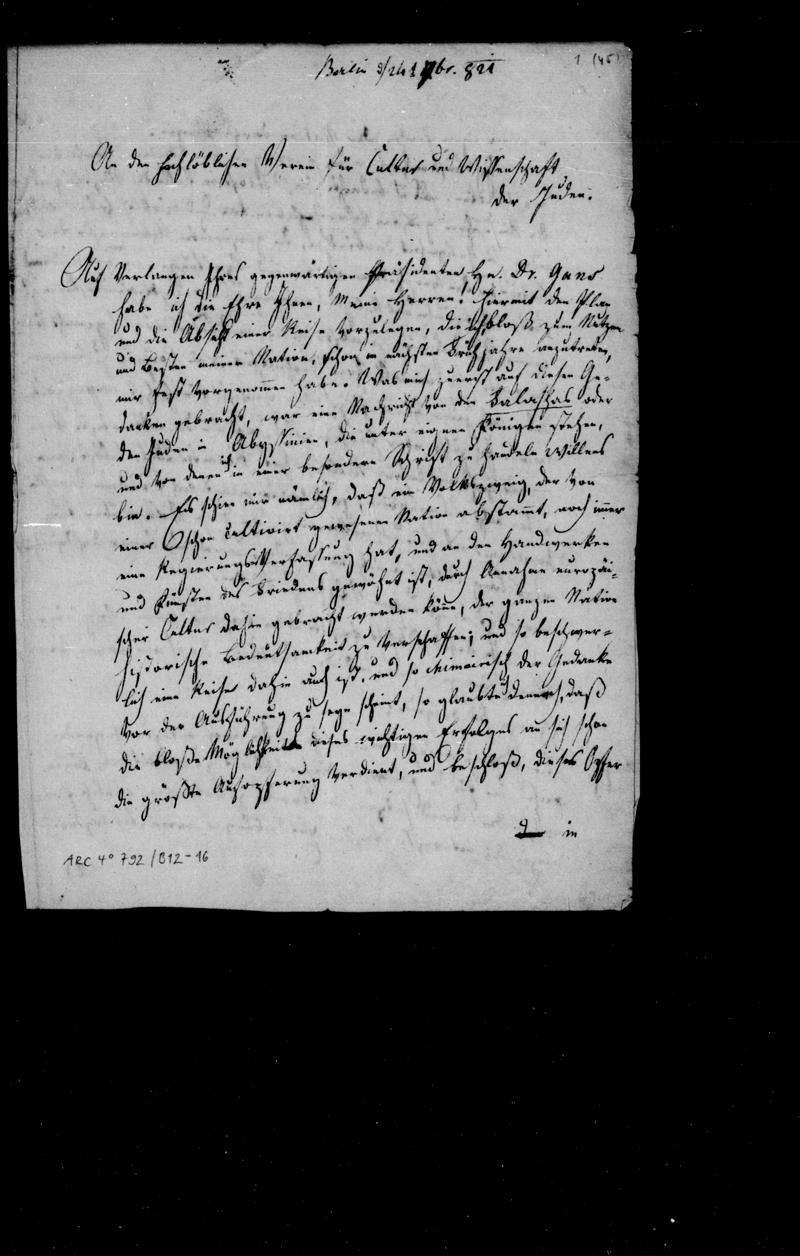 Berlin d/24t 7br. 821
1 (45)
An den hochlöblichen Verein für Cultur und Wissenschaft
der Juden.
Auf Verlangen Ihres gegenwärtigen Präsidenten, Hn. Dr. Gans
habe ich die Ehre Ihnen, Meine Herren! hiermit den Plan
und die Absicht einer Reise vorzulegen, die ich bloß zum Nutzen
und Besten meiner Nation, schon im nächsten Frühjahre anzutreten,
mir fest vorgenommen habe. Was mich zuerst auf diesen Ge-
danken gebracht, war eine Nachricht von den Falashas oder
den Juden in Abyssinien, die unter eignen Königen stehen,
und von denen ich in einer besondern Schrift zu handeln Willens
bin. Es schien mir nämlich, daß ein Volkszweig, der von
einer schon cultivirt gewesenen Nation abstammt, noch immer
eine Regierungs-Verfassung hat, und an den Handwerken
und Künsten des Friedens gewöhnt ist, durch Annahme europäi-
scher Cultur dahin gebracht werden könne, der ganzen Nation
historische Bedeutsamkeit zu verschaffen; und so beschwer-
lich eine Reise dahin auch ist, und so chimärisch der Gedanke
vor der Ausführung zu seyn scheint, so glaubte ich dennoch, daß
die bloße Möglichkeit dieses wichtigen Erfolges an sich schon
die größte Aufopferung verdient, und beschloß, dieses Opfer
in
ARC 4° 792/B12-16